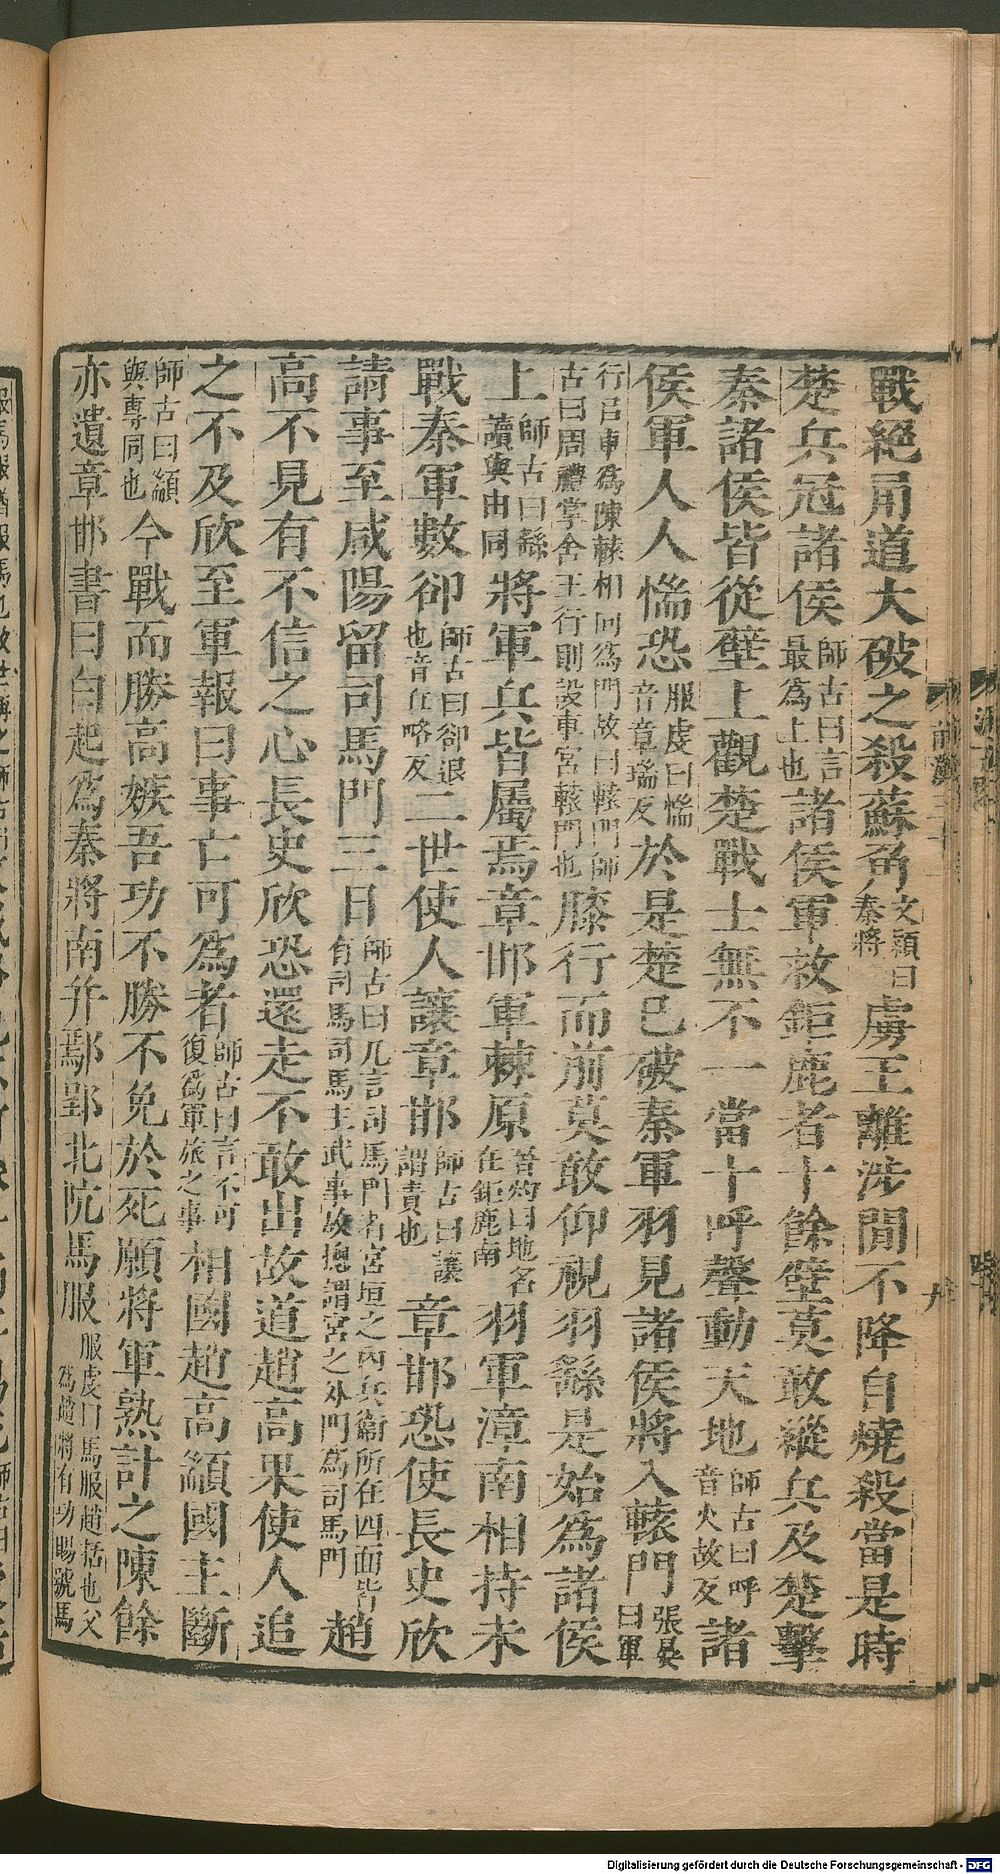 戰絕甬道大破之殺蘇角文穎曰秦將虜王離涉閒不降自燒殺當是時
楚兵冠諸侯師古曰言最爲上也諸侯軍救鉅鹿者十餘壁莫敢縱兵及楚擊
秦諸侯皆從壁上觀楚戰士無不一當十呼聲動天地師古曰呼音火故反諸
侯軍人人惴恐服虔曰惴音章瑞反於是楚已破秦軍羽見諸侯將入轅門張晏曰軍
行以車爲陳轅相向爲門故曰轅門師古曰周禮掌舍王行則設車宮轅門也膝行而前莫敢仰視羽繇是始爲諸侯
上師古曰繇讀與由同將軍兵皆屬焉章邯軍棘原晉灼曰地名在鉅鹿南羽軍漳南相持未
戰秦軍數卻師古曰卻退也音丘略反二世使人讓章邯師古曰讓謂責也章邯恐使長史欣
請事至咸陽留司馬門三日師古曰凡言司馬門者宮垣之內兵衞所在四面皆有司馬司馬主武事故總謂宮之外門爲司馬門趙
高不見有不信之心長史欣恐還走不敢出故道趙高果使人追
之不及欣至軍報曰事亡可爲者師古曰言不可復爲軍旅之事相國趙高顓國主斷
師古曰顓與專同也今戰而勝高嫉吾功不勝不免於死願將軍熟計之陳餘
亦遺章邯書曰白起爲秦將南幷鄢郢北阬馬服服虔曰馬服趙括也父爲趙將有功賜號馬
Digitalisierung gefördert durch die Deutsche Forschungsgemeinschaft - DFG